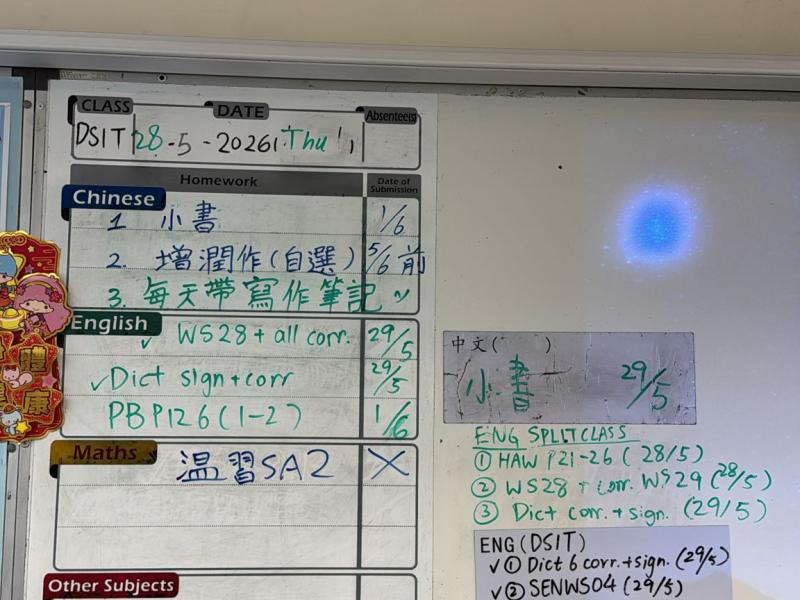 CLASS DATE Absentee(s)
DSIT 28-5-2026 Thu
Homework Date of Submission
Chinese
1. 小書 1/6
2. 增潤作(自選) 5/6前
3. 每天帶寫作筆記
English
✓ WS28 + all corr. 29/5
✓ Dict sign + corr 29/5
PB P126 (1-2) 1/6
Maths
温習SA2 X
Other Subjects
健康
中文( )
小書 29/5
ENG SPLIT CLASS
① HAW P21-26 (28/5)
② WS28 + corr. WS29 (28/5)
③ Dict corr. + sign. (29/5)
ENG (DSIT)
✓ ① Dict 6 corr. + sign. (29/5)
✓ ② SENWS04 (29/5)